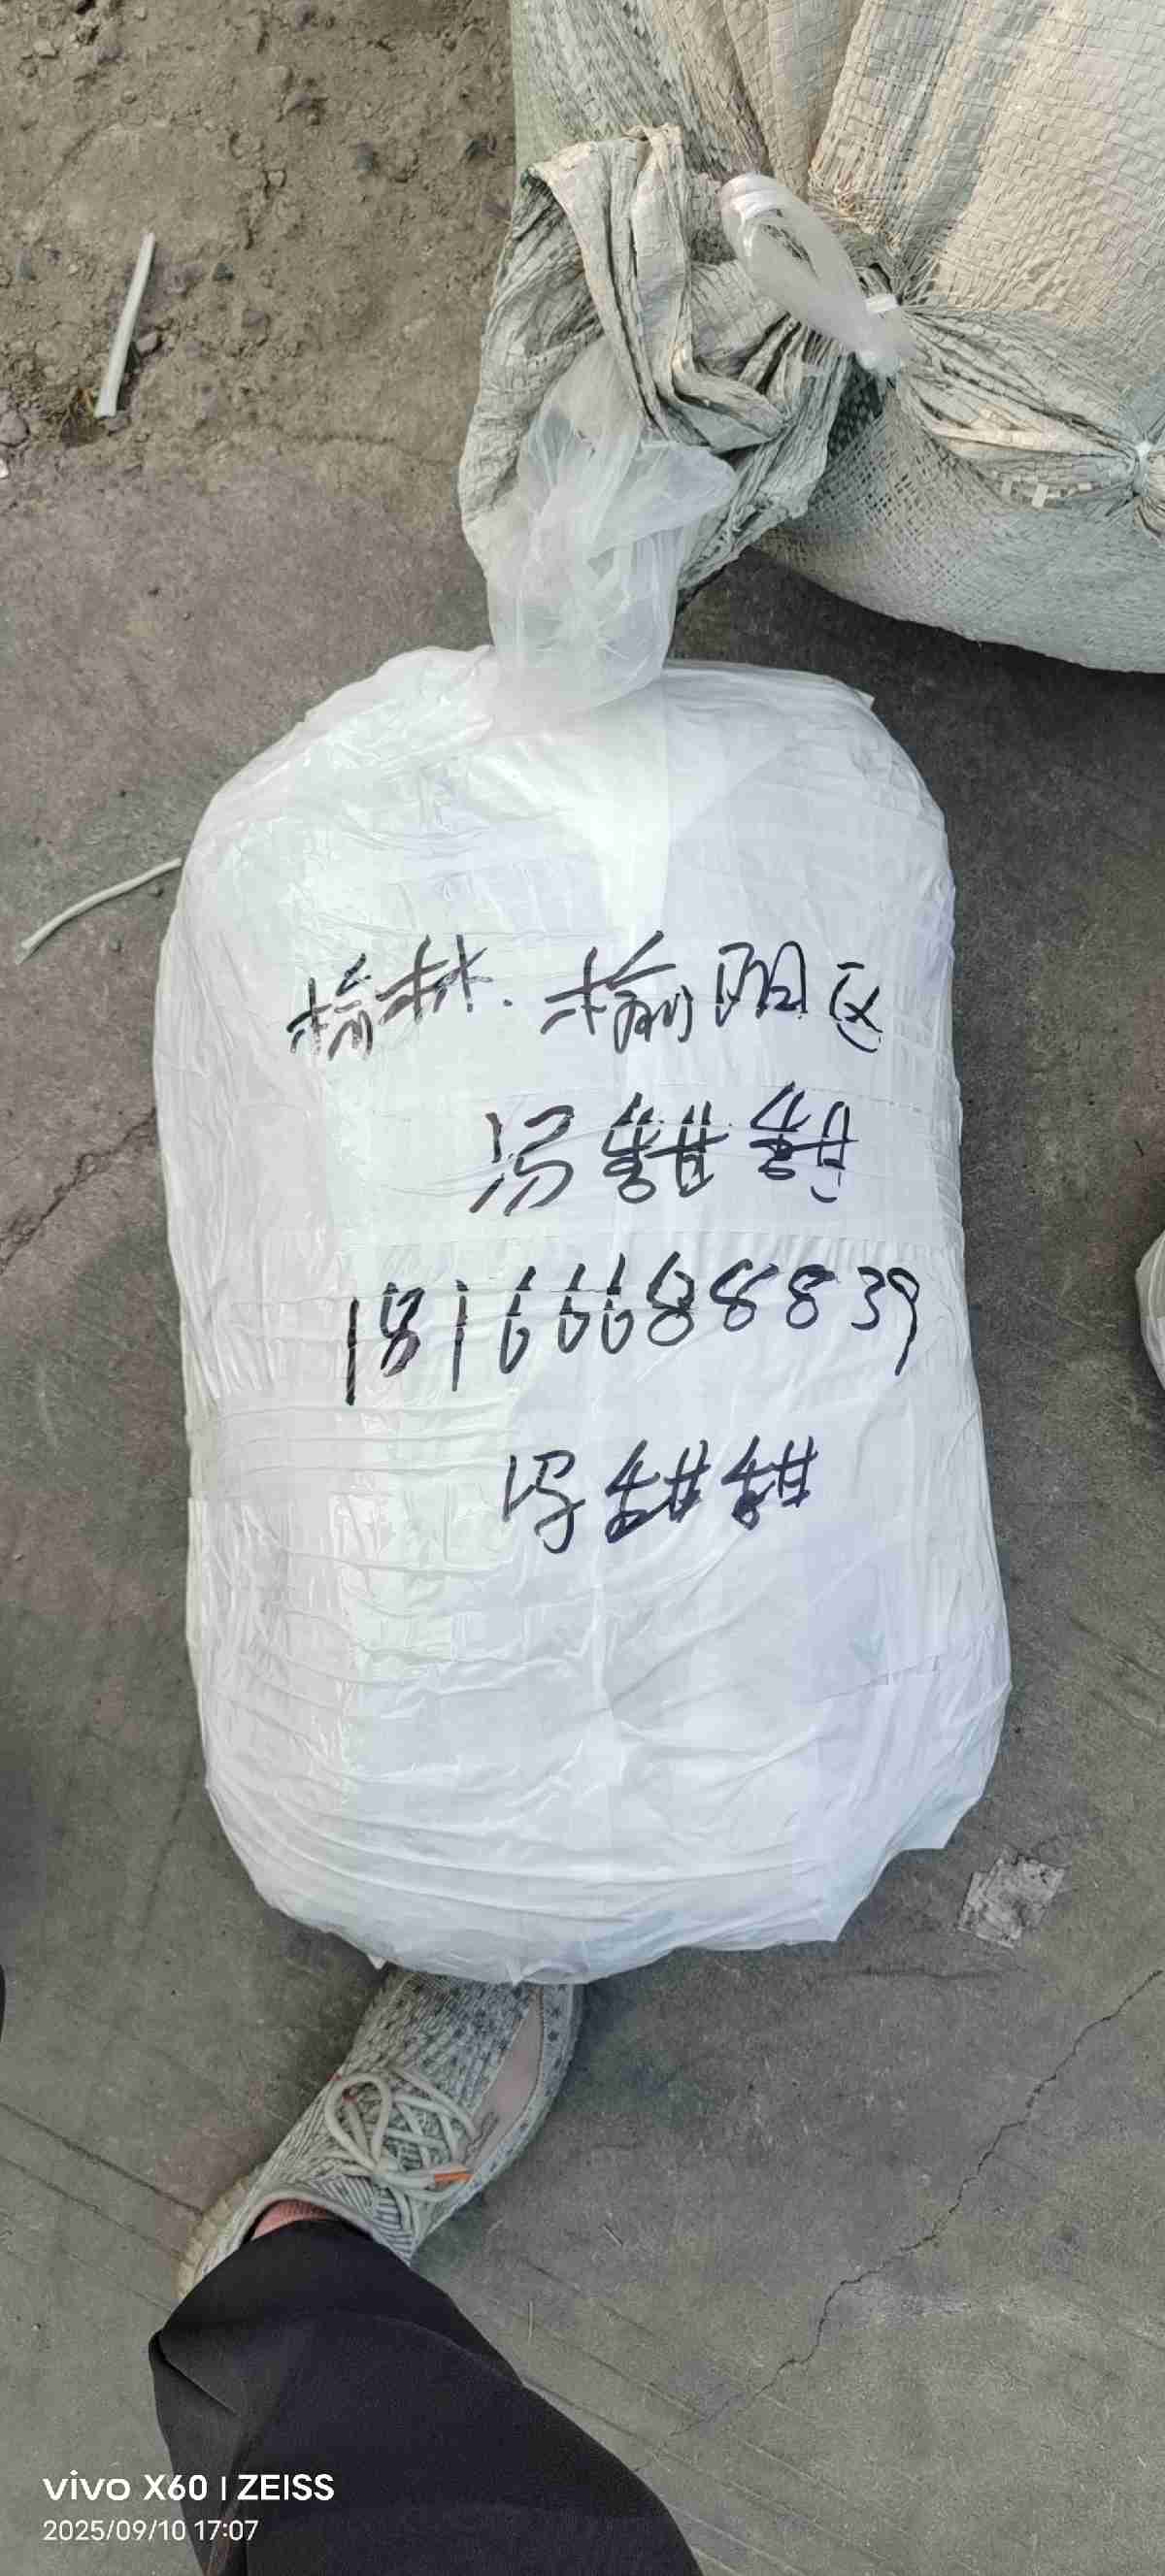 榆林.榆阳区
冯甜甜
18166688839
冯甜甜
vivo X60 | ZEISS
2025/09/10 17:07